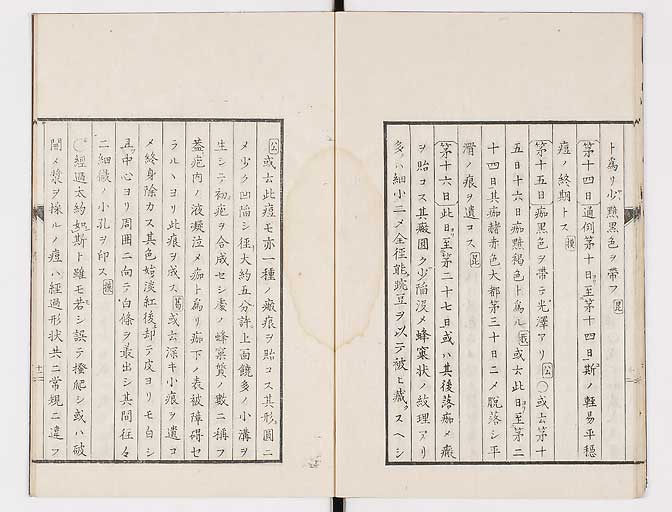 ト為リ少シ黯黒色ヲ帯フ
第十四日通例第十日ヨリ至第十四日斯ノ軽易平穏
痘ノ終期トス
第十五日痂黒色ヲ帯テ光澤アリ公〇或云第十
五日十六日痂黯褐色ト為ル或云此日ヨリ至第二
十四日其痂赭赤色大都第三十日ニメ脱落シ平
滑ノ痕ヲ遺コス
第十六日此日ヨリ至第二十七日或ハ其後落痂メ瘢
ヲ貽コス其瘢圓ク少シ陥没メ蜂窠状ノ紋理アリ
多ハ細小ニメ全徑能豆ヲ以テ被ヒ蔵スヘシ
公或云此痘モ亦一種ノ瘢痕ヲ貽コス其形圓ニ
メ少ク凹陥シ徑大約五分許上面饒多ノ小溝ヲ
生シテ初疱ヲ合成セシ處ノ蜂窠質ノ數ニ稱フ
蓋疱内ノ液凝泣メ痂ト為リ痂下ノ表被障碍セ
ラルヽヨリ此痕ヲ成ス或云深キ小痕ヲ遺コ
メ終身除カス其色始淡紅後却テ皮ヨリモ白シ
且中心ヨリ周囲ニ向テ白條ヲ發出シ其間往々
ニ細微ノ小孔ヲ印ス
〇經過太約如斯ト雖モ若シ誤テ擦爬シ或ハ破
開メ漿ヲ採ルノ痘ハ經過形状共ニ常規ニ違フ